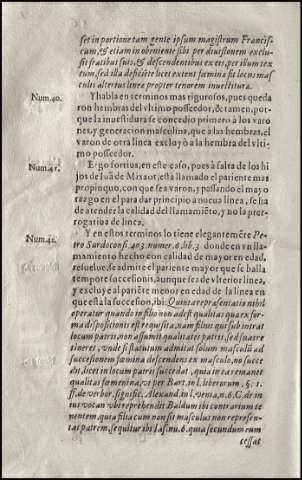 set in portione tam eente ipsum magistrum Francis-
cum, & etiam in obueniente sibi per diuisionem exclu-
sit fratribus suis, & descendentibus ex eis, per illum tex
tum, sed illa deficiẽte licet extent fœmina sit locus mas
culis alterius linea propter tenorem inuestitura.
Num. 40.
Y habla en terminos mas rigurosos, pues queda
ron hembras del vltimo posseedor, & tamen, por-
que la inuestidura se concedio primero à los varo-
nes, y generacion masculina, que a las hembras, el
varon de otra linea excluyò a la hembra del vlti-
mo posseedor.
Num. 41.
Ergo fortius, en este caso, pues à falta de los hi-
jos de Juã de Misaot, està llamado el pariente mas
propinquo, con que sea varon, y passando el mayo
razgo en el para dar principio a nueua linea, se ha
de atender la calidad del llamamiẽto, y no la pre-
rogatiua de linea.
Num. 42.
Y en estos terminos lo tiene elegantemẽte Pe-
tro Surdo consi. 403. numer. 6. lib. 3. donde en vn lla-
mamiento hecho con calidad de mayor en edad,
resuelue, se admite el pariente mayor que se halla
tempore successionis, aunque sea de vlterior linea,
y excluye al pariẽte menor en edad de la linea en
que està la succesion, ibi: Quinta representatio nihil
operatur quando in filio non adest qualitas qua ex for-
ma dispositionis est requisita, nam filius qui sub intrat
locum patris, non assumit qualitates patris, sed suas re
tineret, vnde si statutum admitat solum masculũ ad
succesionem fœmina descendens ex masculo, no succe
dit, licet in locum patris succedat, quia in ea remanet
qualitas fœmenina, vt per Bart. in l. liberorum, §. 1.
ff. de verbor. signific. Alexand. in l. venia, n. 6. C. de in
ius vocan vbi reprehendit Baldum ibi contrarium te
nentem, quia filia cum non sit masculus non represen-
tat patrem, sequitur ibi Jas. nu. 6. quia secundum eum
cessat